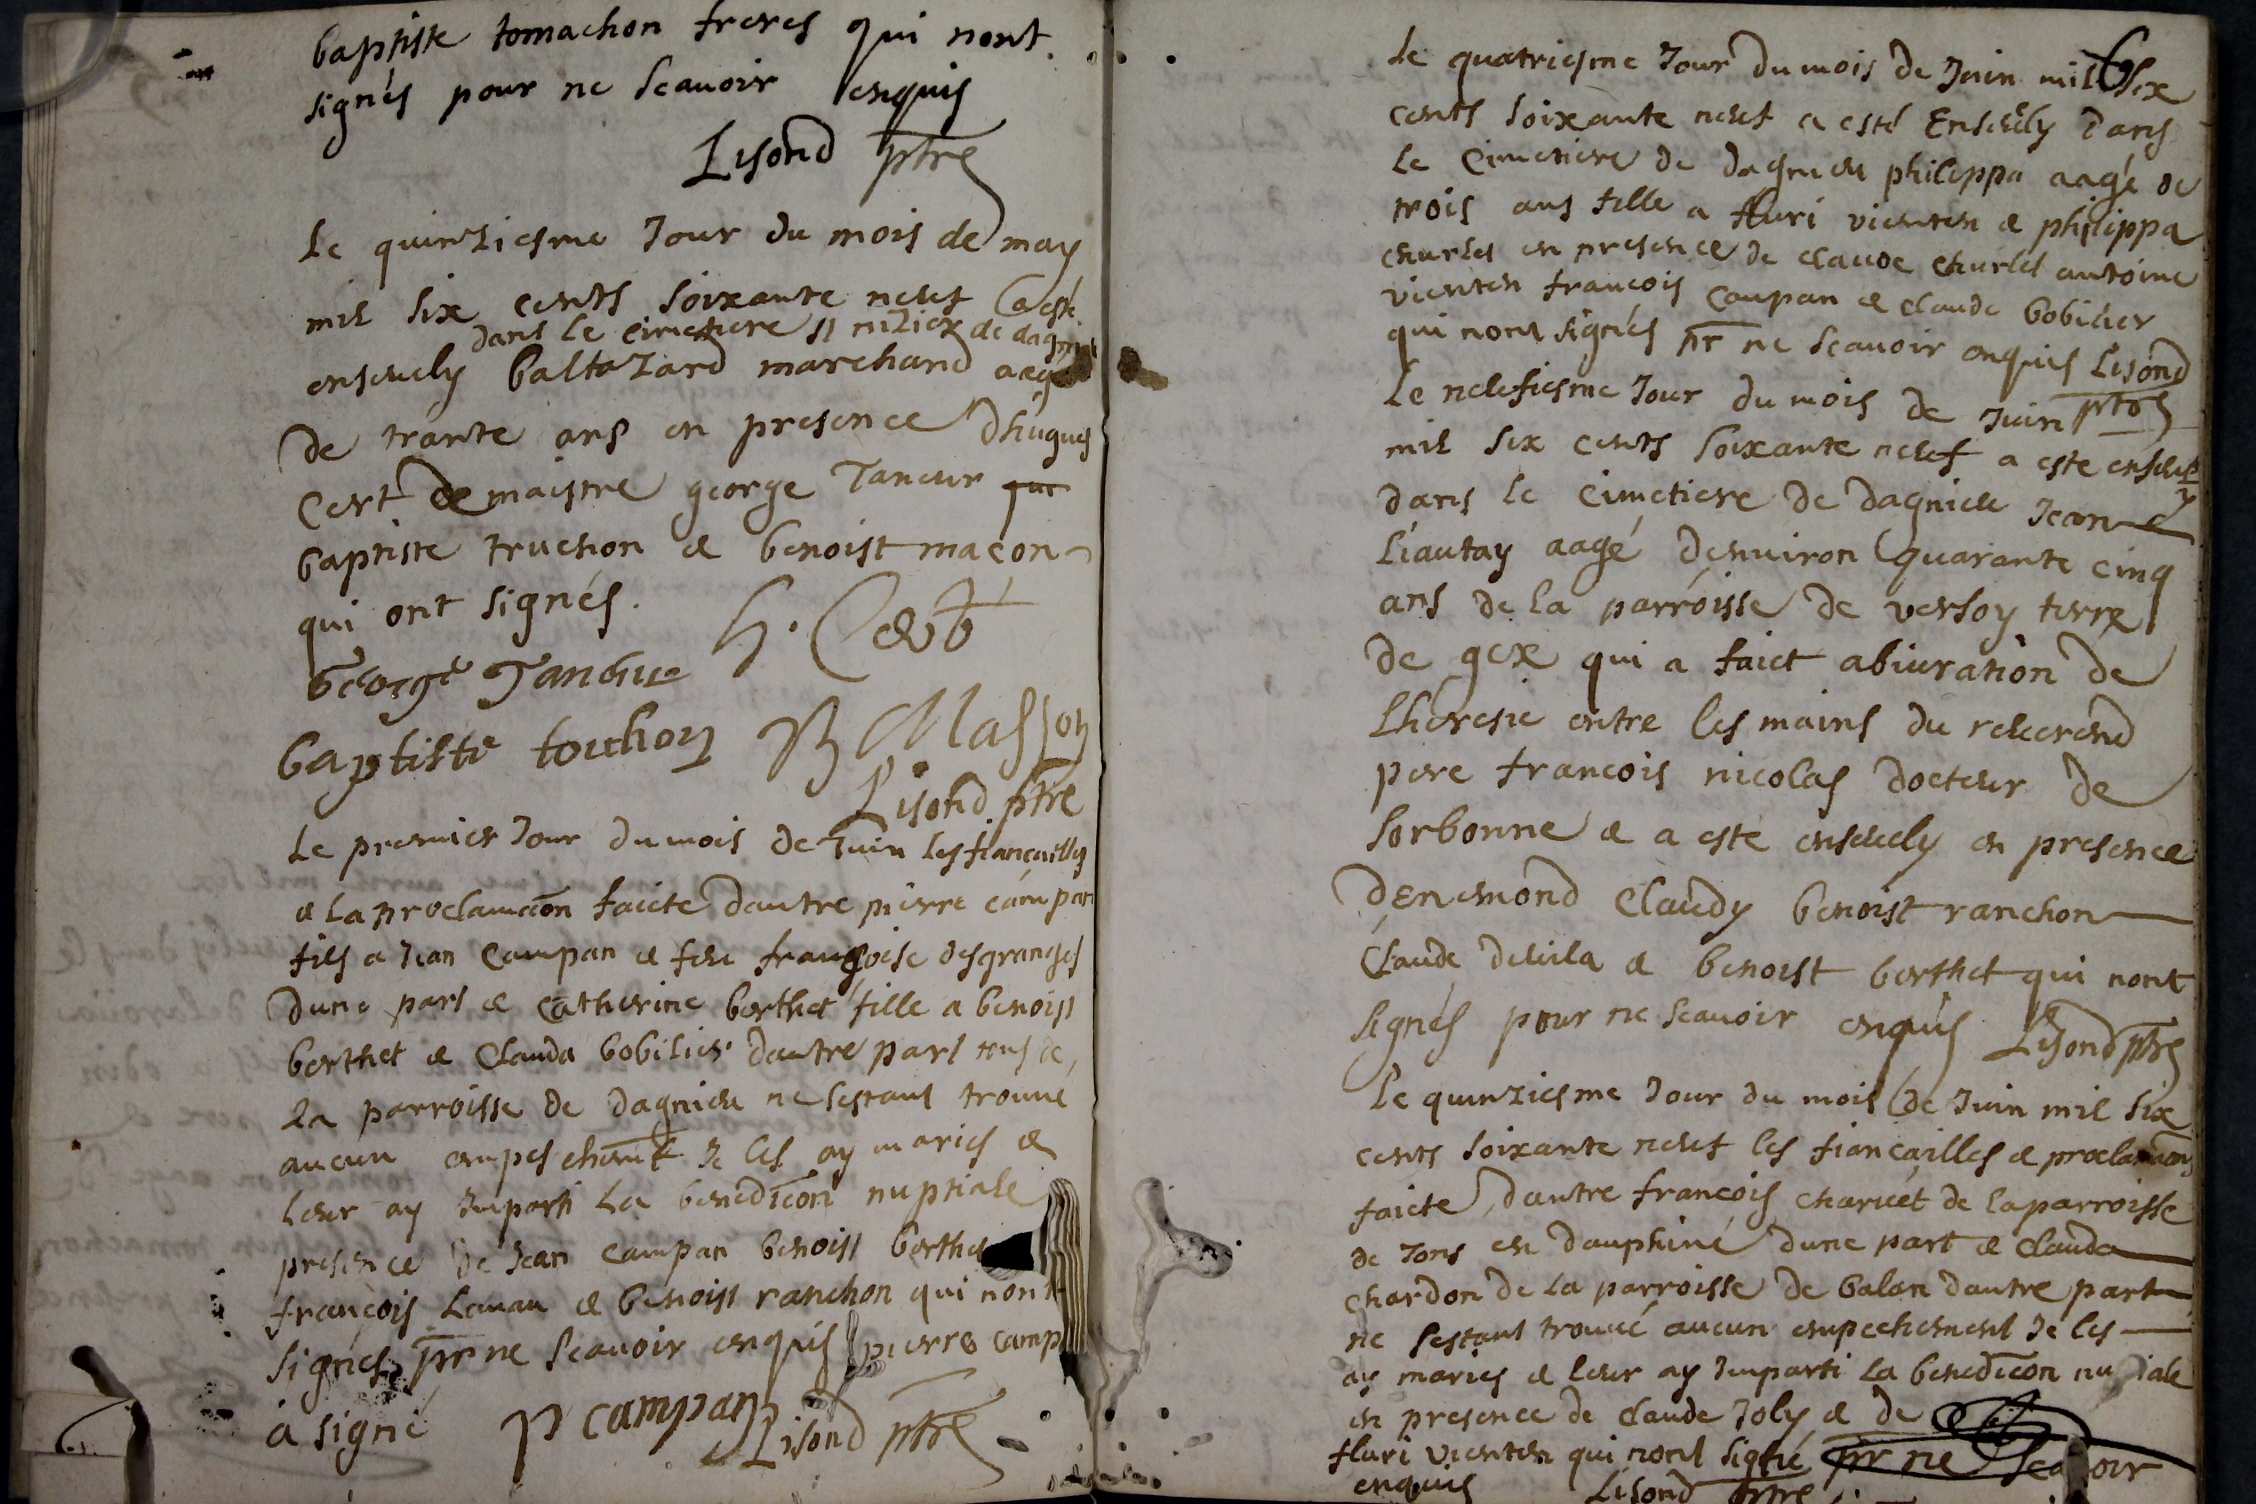 baptiste tomachon freres qui nont
signés pour ne scauoir enquis
Lisond ptre
Le quinziesme Jour du mois de may
mil six cents soixante neuf a esté
dans le cimetiere St nizier de dagnieu
enseuely baltazard marchand aagé
de trante ans en presence dhugues
Cert & maistre george Taneur que
baptiste truchon & benoist macon
qui ont signés.
H. Cert
George Taneur
baptiste truchon B Masson
Lisond ptre
Le premier Jour du mois de Juin les fiancailles
& la proclamaon faicte dautre pierre campan
fils a Jean Campan & feu francoise desgranges
dune part & Catherine berthet fille a benoist
berthet & Clauda bobilier dautre part tous de
la parroisse de dagnieu ne sestant trouué
aucun empeschemt Je les ay mariés &
leur ay Imparti la benedicon nuptiale
presence de Jean Campan benoist berthet
francois Lauau & benoist ranchon qui nont
signés pr ne scauoir enquis pierre camp
a signé P campan
Lisond ptre
6
Le quatriesme Jour du mois de Juin mil six
cents soixante neuf a esté Enseuely dans
le Cimetiere de dagnieu philippa aagé de
trois ans fille a fluri vienten & philippa
charles en presence de claude charles antoine
vienten francois Campan & Claude bobilier
qui nont signés pr ne scauoir enquis Lisond
ptre
Le neufiesme Jour du mois de Juin
mil six cents soixante neuf a este enseuely
dans le Cimetiere de dagnieu Jean
Liautay aagé denuiron quarante cinq
ans de la parroisse de versoy terre
de gex qui a faict abiuration de
Lheresie entre les mains du reuerend
pere francois nicolas docteur de
sorbonne & a este enseuely en presence
denemond Claudy benoist ranchon
Claude deuila & benoist berthet qui nont
signés pour ne scauoir enquis Lisond ptre
Le quinziesme Jour du mois de Juin mil six
cents soixante neuf les fiancailles & proclamaons
faicte dautre francois charuet de la parroisse
de Jons en dauphiné dune part & Clauda
chardon de la parroisse de balan dautre part
ne sestant trouué aucun empechement Je les
ay mariés & leur ay Imparti la benedicon nuptiale
en presence de Claude Joly & de
fluri vienten qui nont signé pr ne scauoir
enquis Lisond ptre